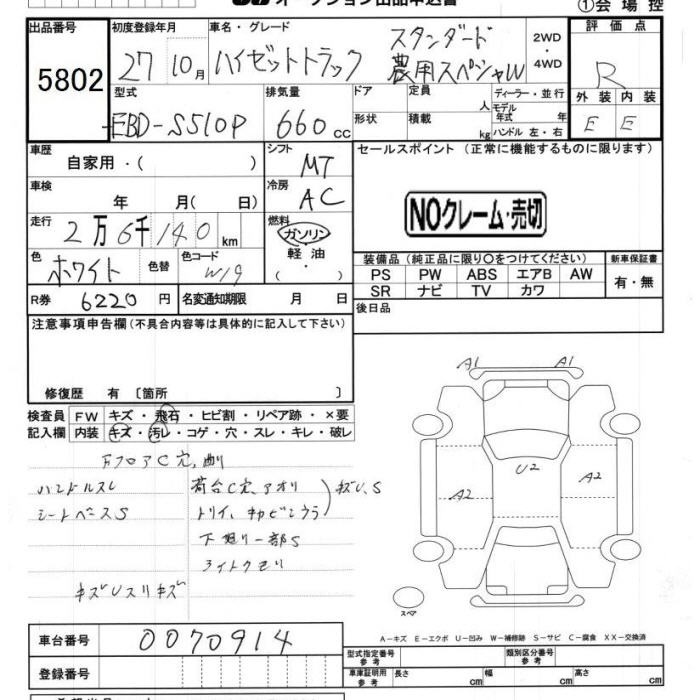 オークション出品申込書
①会場控
出品番号
5802
初度登録年月
27 10月
車名・グレード
ハイゼットトラック
スタンダード
農用スペシャル
2WD
・
4WD
評価点
R
外装 内装
E E
型式
EBD-S510P
排気量
660 cc
ドア
形状
定員
人
積載
kg
ディーラー・並行
モデル
年式 年
ハンドル 左・右
車歴
自家用・( )
シフト
MT
セールスポイント (正常に機能するものに限ります)
NOクレーム・売切
車検
年 月( 日)
冷房
AC
走行
2万6千140km
燃料
ガソリン
軽油
・
( )
色
ホワイト
色替
色コード
W19
装備品 (純正品に限り〇をつけてください)
PS PW ABS エアB AW
SR ナビ TV カワ
新車保証書
有・無
R券 6220円
名変通知期限 月 日
後日品
注意事項申告欄(不具合内容等は具体的に記入して下さい)
修復歴 有 〔箇所 〕
検査員 FW キズ・飛石・ヒビ割・リペア跡・×要
記入欄 内装 キズ・汚レ・コゲ・穴・スレ・キレ・破レ
FフロアC穴、曲リ
ハンドルスレ
荷台C穴、アオリ
キズU.S
シートベースS
下廻り一部S
ライトクモリ
A1 A1
U2
A2 A2
スペア
A-キズ E-エクボ U-凹み W-補修跡 S-サビ C-腐食 XX-交換済
車台番号 0070914
登録番号
型式指定番号
参考
類別区分番号
参考
車庫証明用
参考
長さ cm
幅 cm
高さ cm